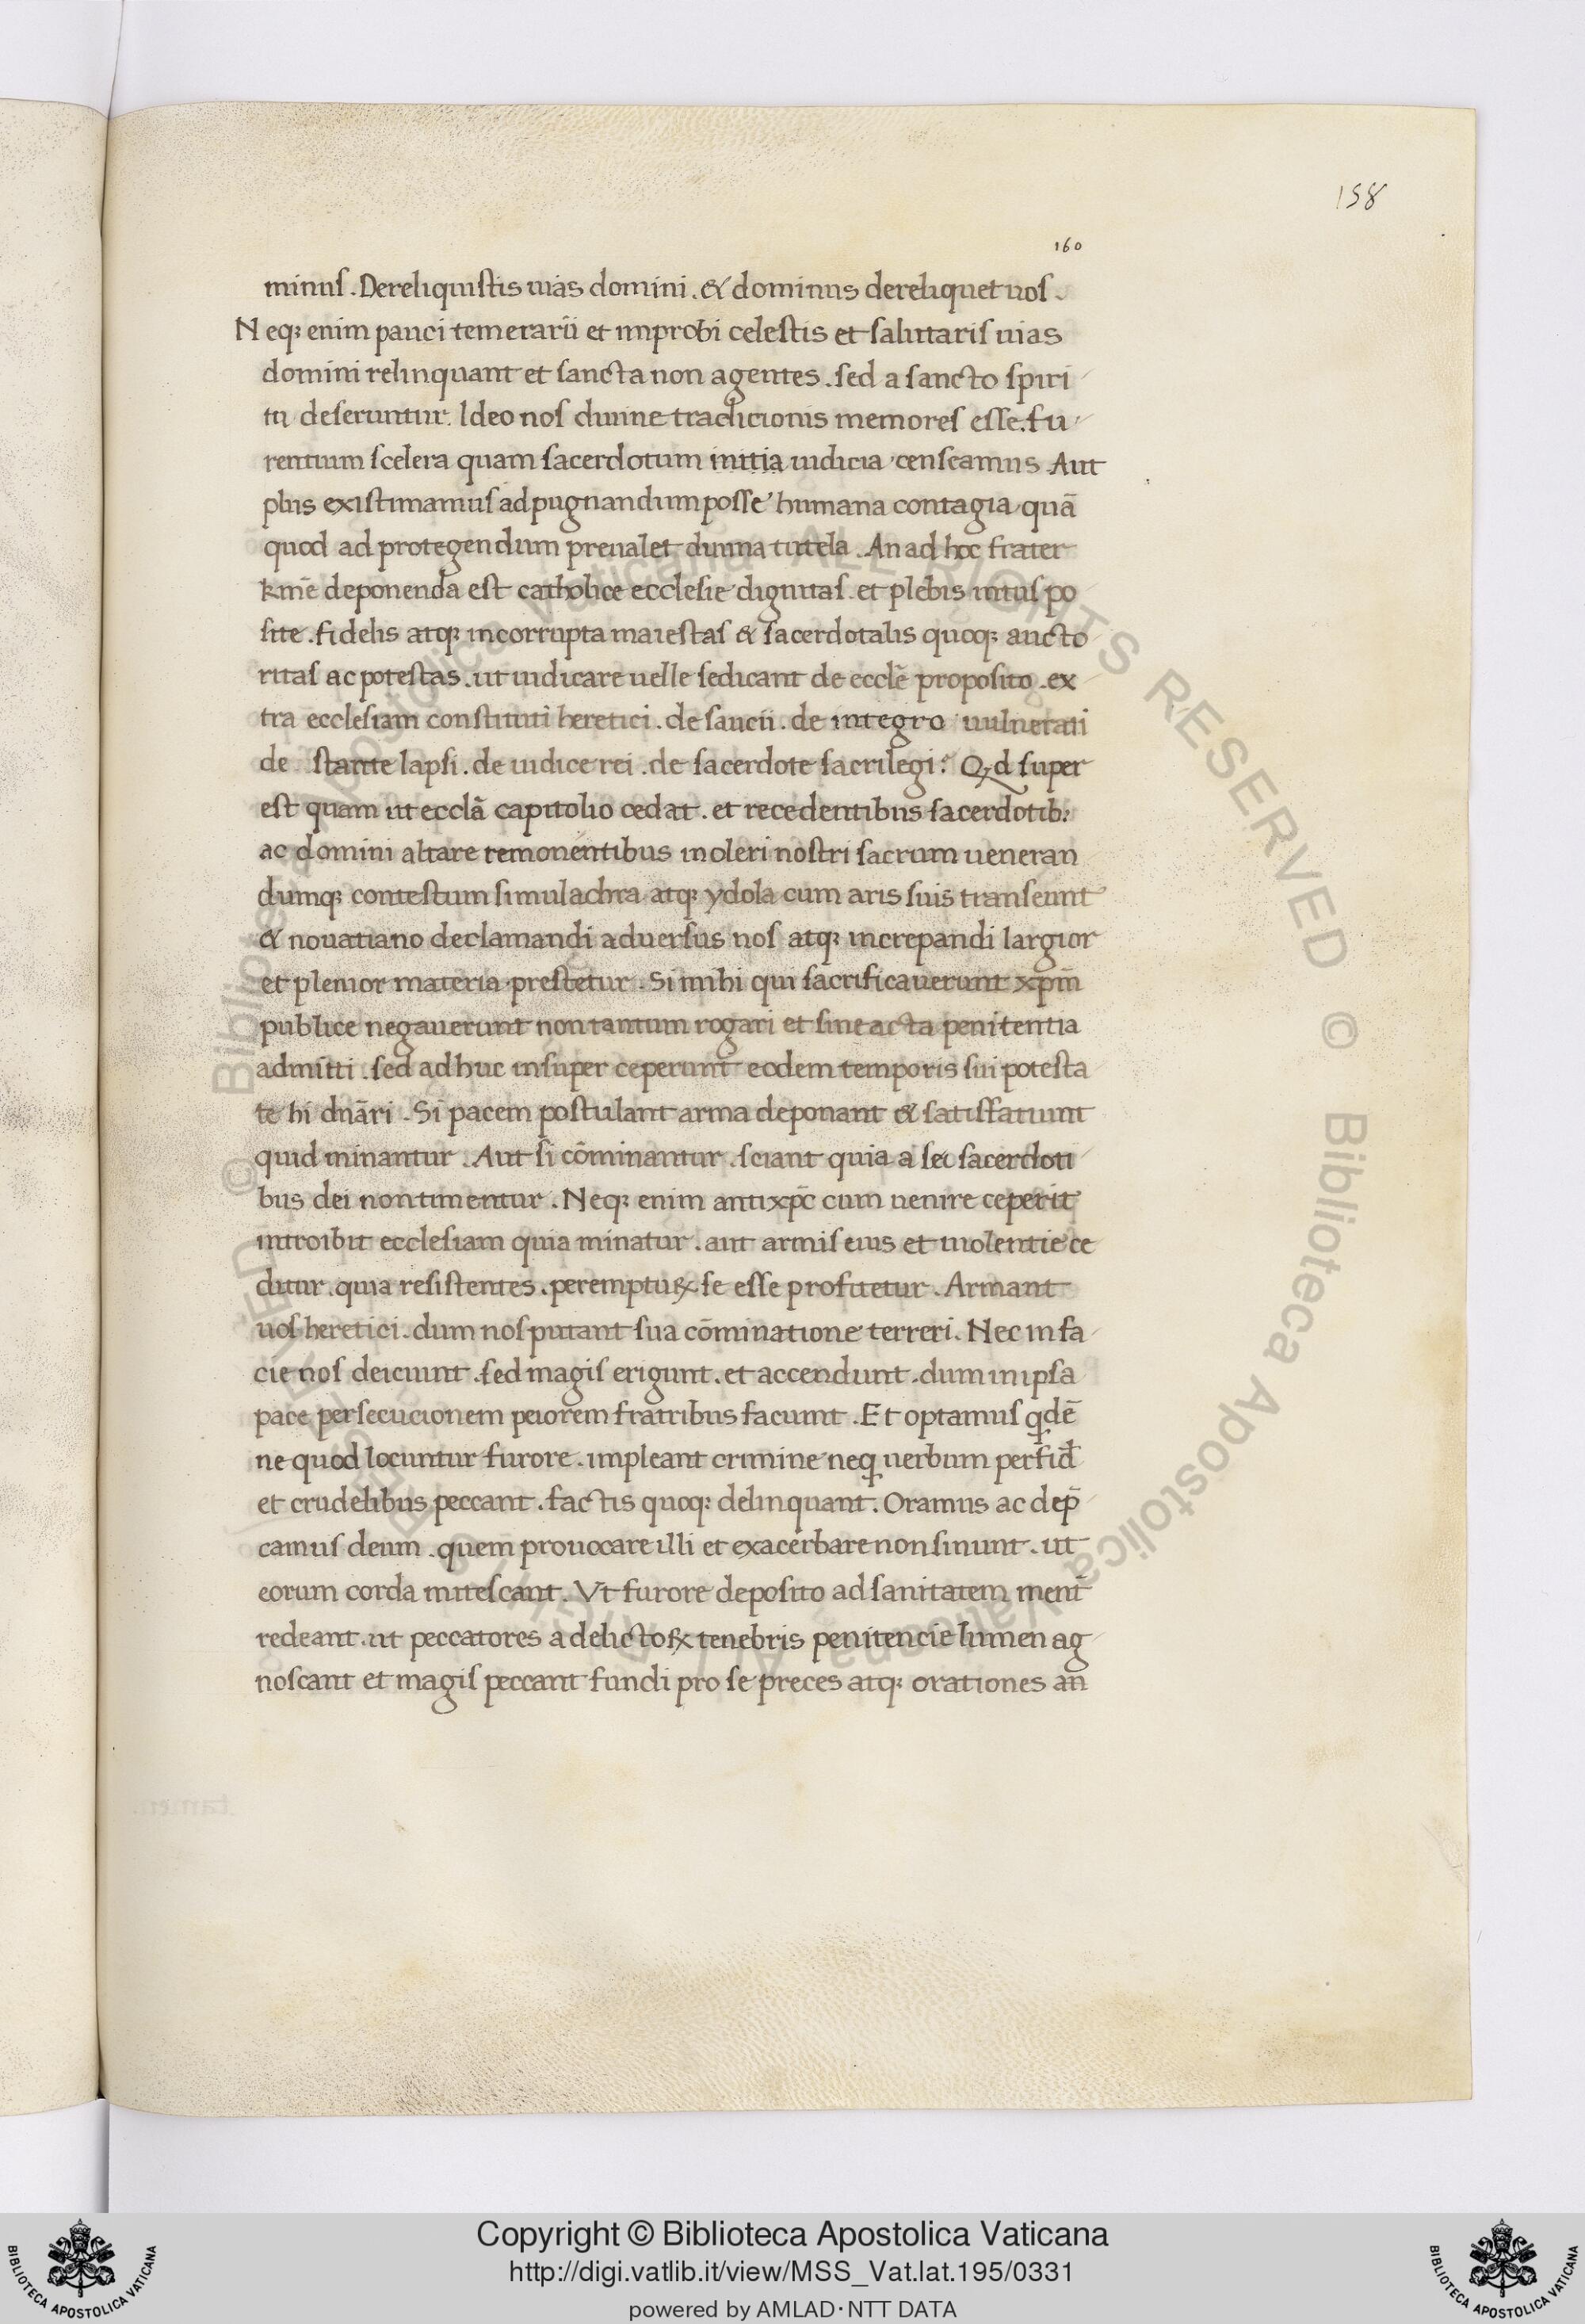 158
160
minuſ . Dereliquiſtis uias domini . & dominus dereliquet uoſ .
Neq; enim pauci temerarii et improbi celeſtis et ſalutariſ uias
domini relinquant et ſancta non agentes . ſed a ſancto ſpiri
tu deſeruntur . Ideo noſ diuine tradicionis memoreſ eſſe . fu
rentium ſcelera quam ſacerdotum initia iudicia cenſeamus Aut
plus exiſtimamuſ ad pugnandum poſſe humana contagia quā
quod ad protegendum preualet diuina tutela . An ad hoc frater
kmē deponenda eſt catholice eccleſie dignitaſ . et plebis intuſ po
ſite . fidelis atq; incorrupta maieſtaſ & ſacerdotalis quoq; aucto
ritaſ ac poteſtas . ut iudicare uelle ſe dicant de ecclē propoſito . ex
tra eccleſiam conſtituti heretici . de ſancii . de integro uulnerati
de ſtante lapſi . de iudice rei . de ſacerdote ſacrilegi . Qd ſuper
eſt quam ut ecclā capitolio cedat . et recedentibus ſacerdotib;
ac domini altare remonentibus in oleri noſtri ſacrum ueneran
dumq; conteſtum ſimulachra atq; ydola cum aris ſuis tranſeunt
& nouatiano declamandi aduerſus noſ atq; increpandi largior
et plenior materia preſtetur . Si mihi qui ſacrificauerunt xpm̄
publice negauerunt non tantum rogari et ſine acta penitentia
admitti . ſed adhuc inſuper ceperunt eodem temporis ſui poteſta
te hi dnāri . Si pacem poſtulant arma deponant & ſatiſfatiunt
quid minantur . Aut ſi cōminantur . ſciant quia a ſei ſacerdoti
bus dei non timentur . Neq; enim antixpc̄ cum uenire ceperit
introibit eccleſiam quia minatur . aut armiſ eius et uiolentie ce
ditur . quia reſiſtentes . perempturꝝ ſe eſſe profitetur . Armant
uoſ heretici . dum noſ putant ſua cōminatione terreri . Nec in fa
cie noſ deiciunt . ſed magiſ erigunt . et accendunt . dum in ipſa
pace perſecucionem peiorem fratribus faciunt . Et optamuſ qdē
ne quod locuntur furore . impleant crimine neq uerbum perfid
et crudelibus peccant . factis quoq; delinquant . Oramus ac dep̄
camuſ deum . quem prouocare illi et exacerbare non ſinunt . ut
eorum corda miteſcant . Vt furore depoſito ad ſanitatem ment̄
redeant . ut peccatores a delictoꝝ tenebris penitencie lumen ag
noſcant et magiſ peccant fundi pro ſe preces atq; orationes an
© Biblioteca Apostolica Vaticana ALL RIGHTS RESERVED
© Biblioteca Apostolica Vaticana ALL RIGHTS RESERVED
BIBLIOTECA APOSTOLICA VATICANA
Copyright © Biblioteca Apostolica Vaticana
http://digi.vatlib.it/view/MSS_Vat.lat.195/0331
powered by AMLAD·NTT DATA
BIBLIOTECA APOSTOLICA VATICANA